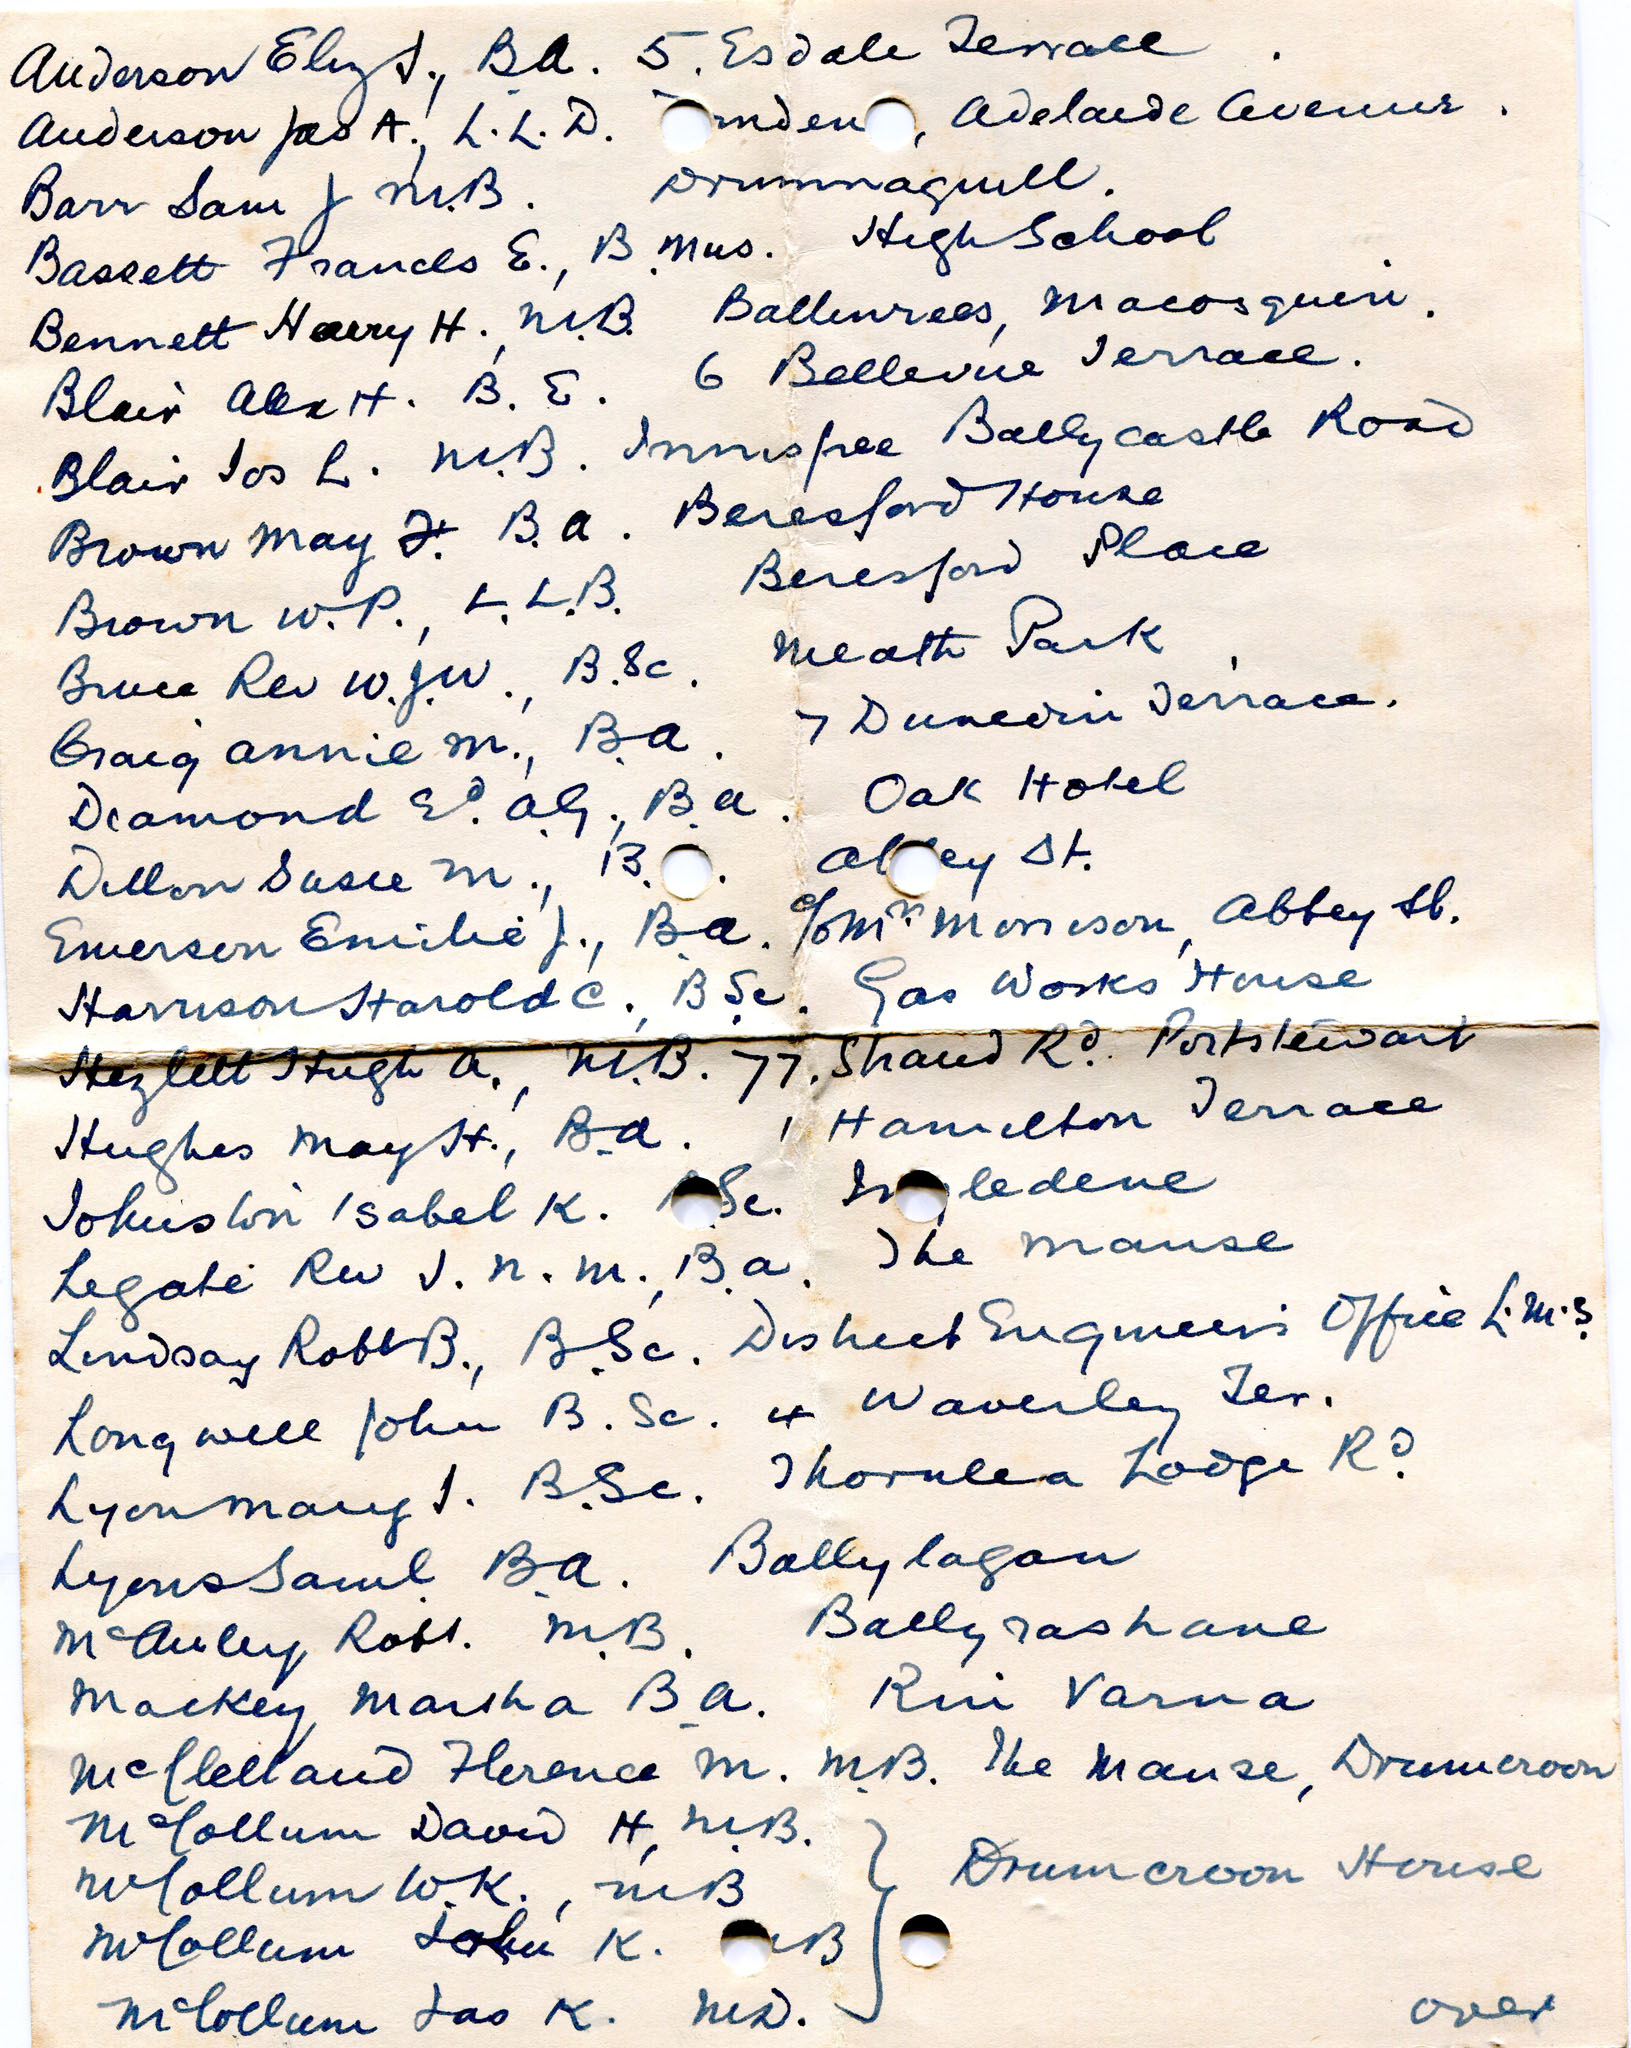 Anderson Eliz J., B.A. 5. Esdale Terrace.
Anderson Jas A., L.L.D. Adelaide Avenue.
Barr Sam J M.B. Drumnaquill.
Bassett Frances E., B.Mus. High School
Bennett Harry H., M.B. Ballinrees, Macosquin.
Blair Alex H. B.E. 6 Bellevue Terrace.
Blair Jos L. M.B. Innisfree Ballycastle Road
Brown May H. B.A. Beresford House
Brown W.P., L.L.B. Beresford Place
Bruce Rev W.J.W., B.Sc. Meath Park
Craig Annie M., B.A. 7 Dunedin Terrace.
Diamond Ed. A.G., B.A. Oak Hotel
Dillon Susie M., B. Abbey St.
Emerson Emilie J., B.A. c/o Mrs Morrison, Abbey St.
Harrison Harold C., B.Sc. Gas Works House
Hezlett Hugh A., M.B. 77. Strand Rd. Portstewart
Hughes May H., B.A. 1 Hamilton Terrace
Johnston Isabel K. Sc. Ingledene
Legate Rev J.N.M., B.A. The Manse
Lindsay Robt B., B.Sc. District Engineers Office L.M.S.
Longwell John B.Sc. 4 Waverley Ter.
Lyon Mary J. B.Sc. Thornlea Lodge Rd.
Lyons Saml B.A. Ballylagan
McAuley Robt. M.B. Ballyrashane
Mackey Martha B.A. Rin Varna
McClelland Florence M. M.B. The Manse, Drumcroon
McCollum David H, M.B.
McCollum W.K., M.B } Drumcroon House
McCollum John K. MB
McCollum Jas K. M.D.
over